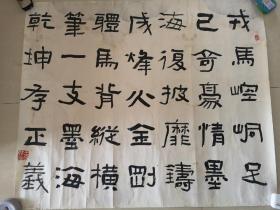 戎馬崆峒足
已奇豪情墨
海復披靡鑄
成烽火金剛
體馬背縱橫
筆一支墨海
乾坤存正義